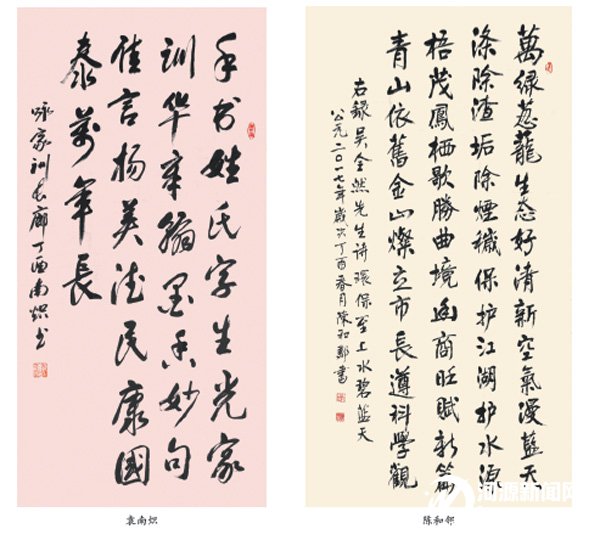 手书姓氏字生光家
训华章翰墨香妙句
佳言扬美德民康国
泰萬年長
咏家训长廊丁酉南炽书
萬绿葱蘢生态好清新空氣漫藍天
涤除渣垢除煙穢保护江湖护水源
梧茂鳳栖歌勝曲境幽商旺賦新篇
青山依舊金山燦立市長遵科學觀
右録吴全然先生诗環保至上水碧藍天
公元二〇一七年歲次丁酉春月陳和邻書
袁南炽
陈和邻
河源新闻网